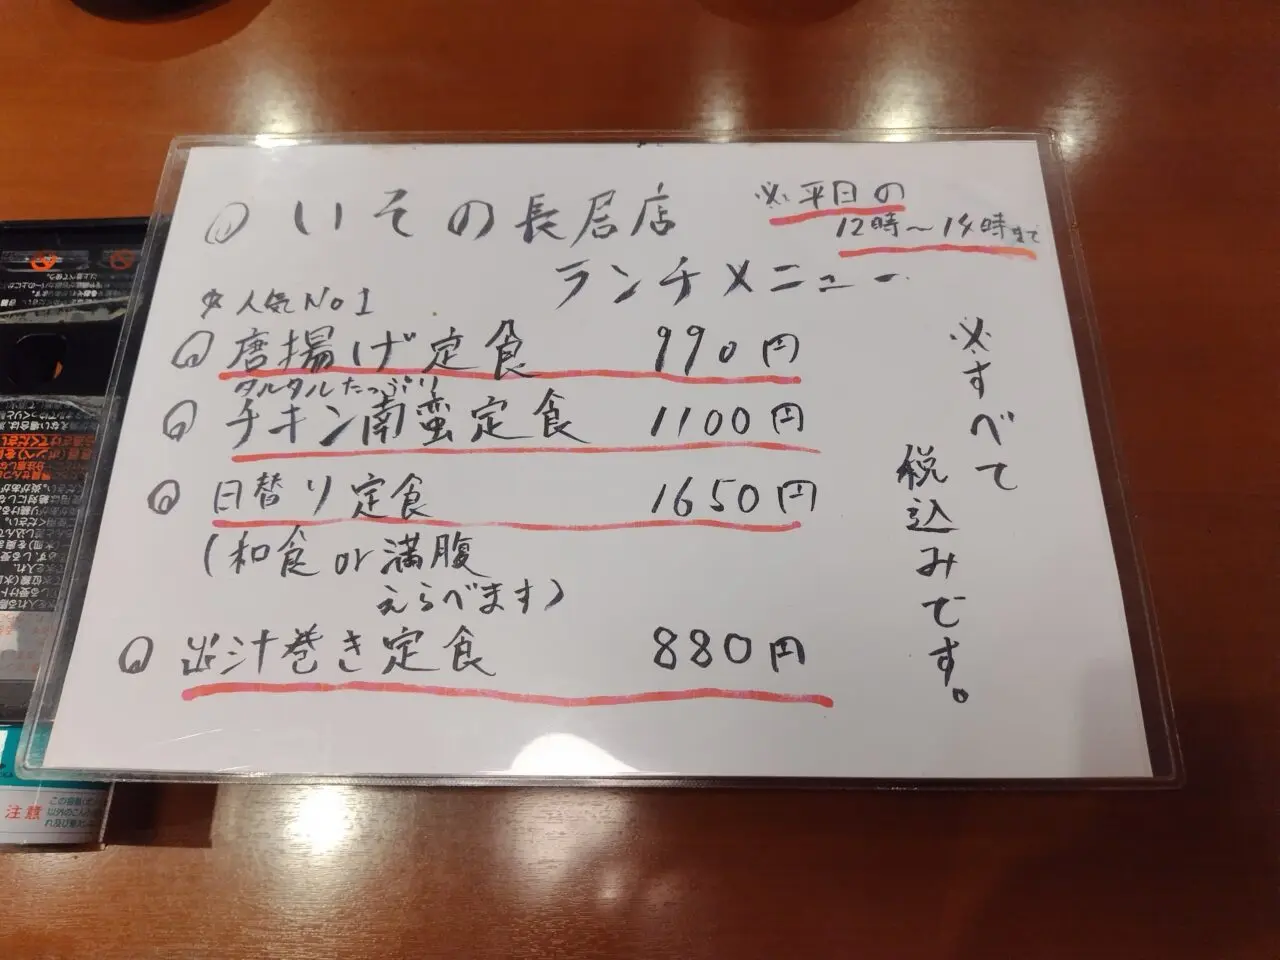 いその長居店
※平日の
12時〜14時まで
ランチメニュー
☆人気No1
唐揚げ定食 990円
タルタルたっぷり
チキン南蛮定食 1100円
日替り定食 1650円
(和食or満腹
えらべます)
出汁巻き定食 880円
※すべて
税込みです。
注意